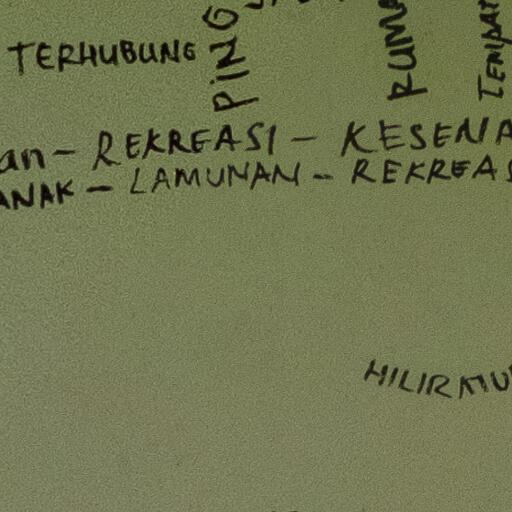 TERHUBUNG
PING
RUMA
TEMPAT
an - REKREASI - KESENIA
ANAK - LAMUNAN - REKREAS
HILIR MU